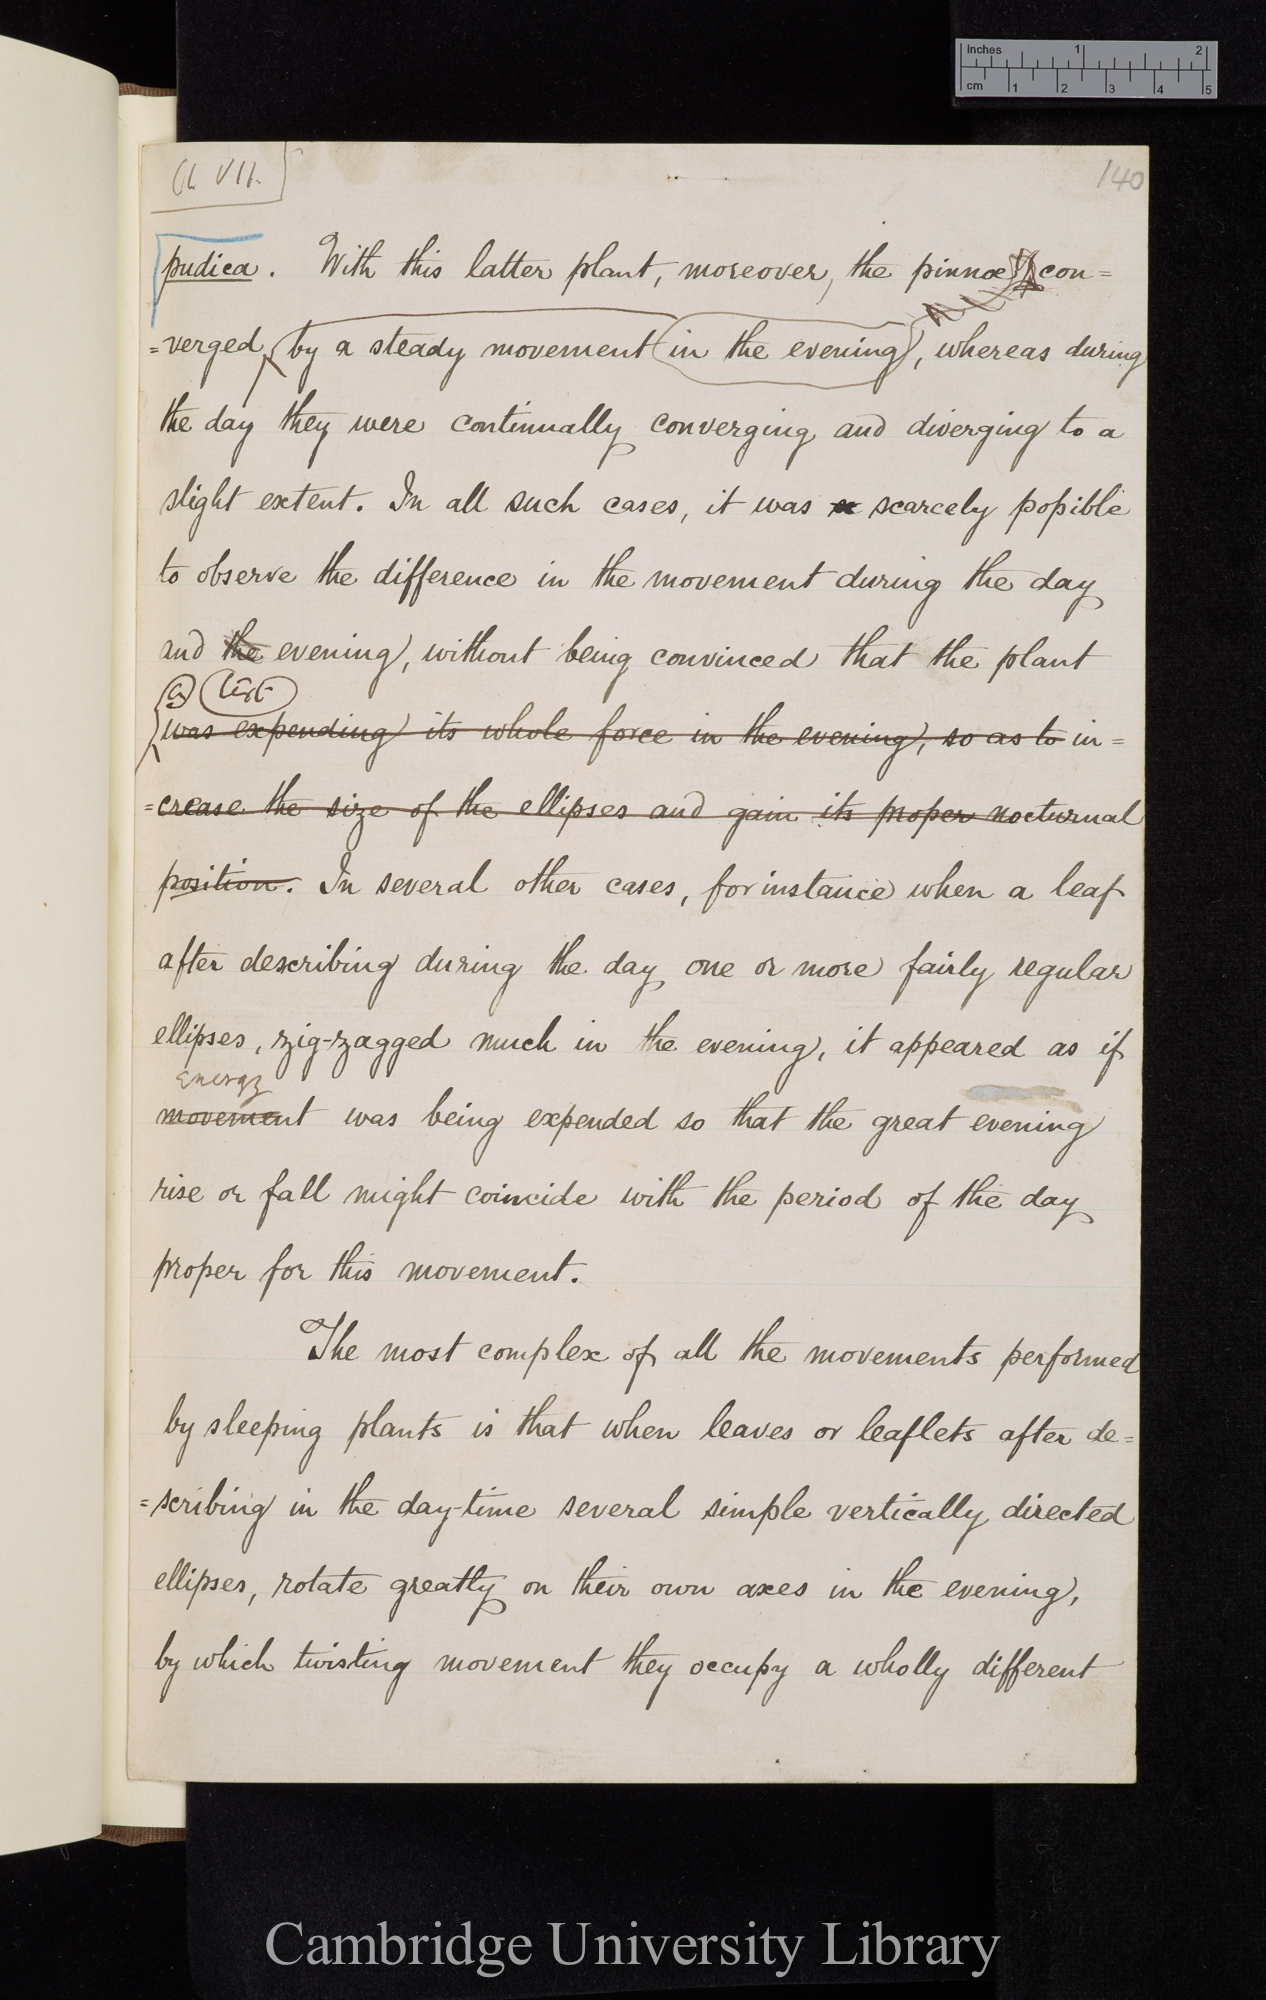 Inches 1 2
cm 1 2 3 4 5
Ch VII.
140
pudica. With this latter plant, moreover, the pinnæ con=
=verged by a steady movement in the evening, whereas during
the day they were continually converging and diverging to a
slight extent. In all such cases, it was scarcely possible
to observe the difference in the movement during the day
and the evening, without being convinced that the plant
(a) text
was expending its whole force in the evening, so as to in=
=crease the size of the ellipses and gain its proper nocturnal
position. In several other cases, for instance when a leaf
after describing during the day one or more fairly regular
ellipses, zig-zagged much in the evening, it appeared as if
energy
movement was being expended so that the great evening
rise or fall might coincide with the period of the day
proper for this movement.
The most complex of all the movements performed
by sleeping plants is that when leaves or leaflets after de=
=scribing in the day-time several simple vertically directed
ellipses, rotate greatly on their own axes in the evening,
by which twisting movement they occupy a wholly different
Cambridge University Library